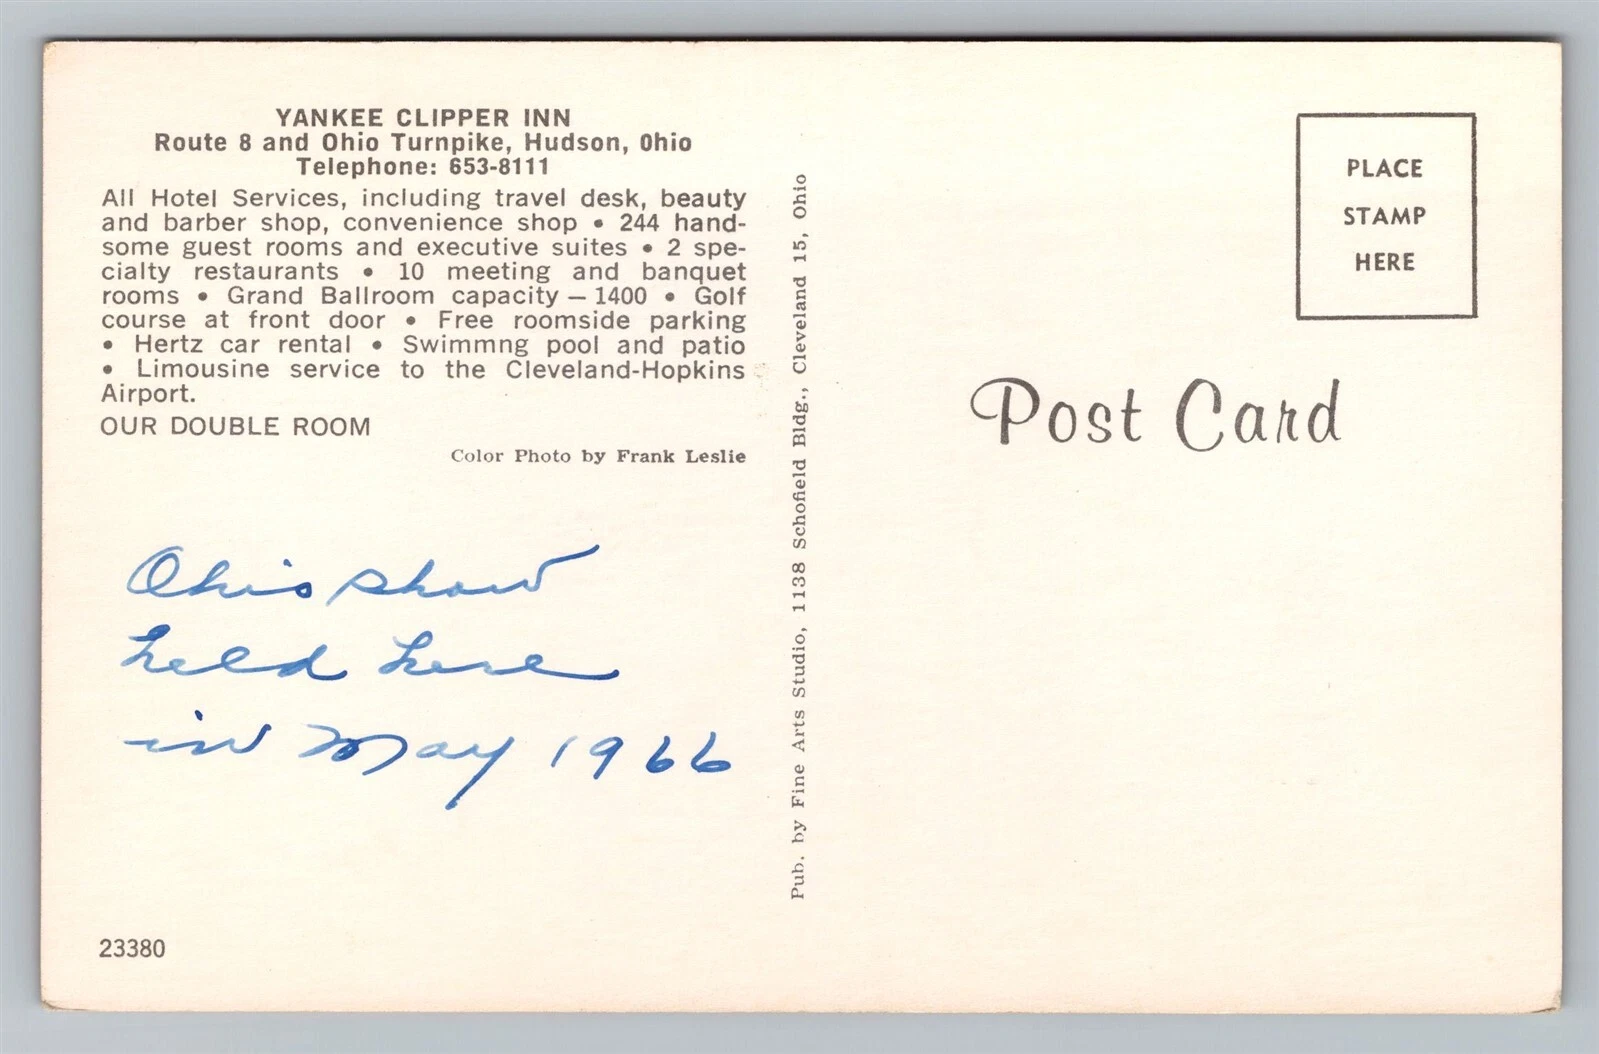 YANKEE CLIPPER INN
Route 8 and Ohio Turnpike, Hudson, Ohio
Telephone: 653-8111
All Hotel Services, including travel desk, beauty
and barber shop, convenience shop • 244 hand-
some guest rooms and executive suites • 2 spe-
cialty restaurants • 10 meeting and banquet
rooms • Grand Ballroom capacity — 1400 • Golf
course at front door • Free roomside parking
• Hertz car rental • Swimmng pool and patio
• Limousine service to the Cleveland-Hopkins
Airport.
OUR DOUBLE ROOM
Color Photo by Frank Leslie
Ohio show
held here
in May 1966
23380
Pub. by Fine Arts Studio, 1138 Schofield Bldg., Cleveland 15, Ohio
PLACE
STAMP
HERE
Post Card